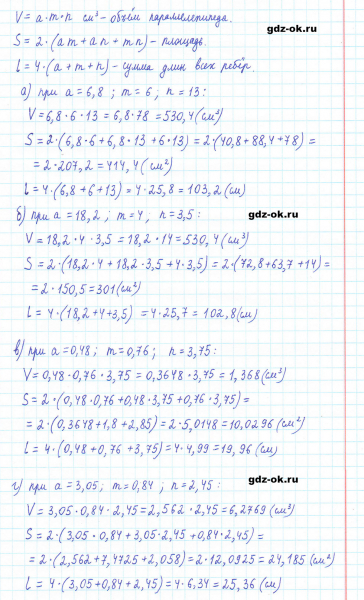 V = a·m·n см³ - объём параллелепипеда.
gdz-ok.ru
S = 2·(am + an + mn) - площадь.
l = 4·(a + m + n) - сумма длин всех рёбер.
а) при a = 6,8 ; m = 6 ; n = 13 :
V = 6,8·6·13 = 6,8·78 = 530,4 (см³)
S = 2·(6,8·6 + 6,8·13 + 6·13) = 2·(40,8 + 88,4 + 78) =
= 2·207,2 = 414,4 (см²)
l = 4·(6,8 + 6 + 13) = 4·25,8 = 103,2 (см)
б) при a = 18,2 ; m = 4 , n = 3,5 :
gdz-ok.ru
V = 18,2·4·3,5 = 18,2·14 = 530,4 (см³)
S = 2·(18,2·4 + 18,2·3,5 + 4·3,5) = 2·(72,8 + 63,7 + 14) =
= 2·150,5 = 301 (см²)
l = 4·(18,2 + 4 + 3,5) = 4·25,7 = 102,8 (см)
в) при a = 0,48 ; m = 0,76 ; n = 3,75 :
V = 0,48·0,76·3,75 = 0,3648·3,75 = 1,368 (см³)
S = 2·(0,48·0,76 + 0,48·3,75 + 0,76·3,75) =
= 2·(0,3648 + 1,8 + 2,85) = 2·5,0148 = 10,0296 (см²)
l = 4·(0,48 + 0,76 + 3,75) = 4·4,99 = 19,96 (см)
gdz-ok.ru
г) при a = 3,05 ; m = 0,84 ; n = 2,45 :
V = 3,05·0,84·2,45 = 2,562·2,45 = 6,2769 (см³)
S = 2·(3,05·0,84 + 3,05·2,45 + 0,84·2,45) =
= 2·(2,562 + 7,4725 + 2,058) = 2·12,0925 = 24,185 (см²)
l = 4·(3,05 + 0,84 + 2,45) = 4·6,34 = 25,36 (см)